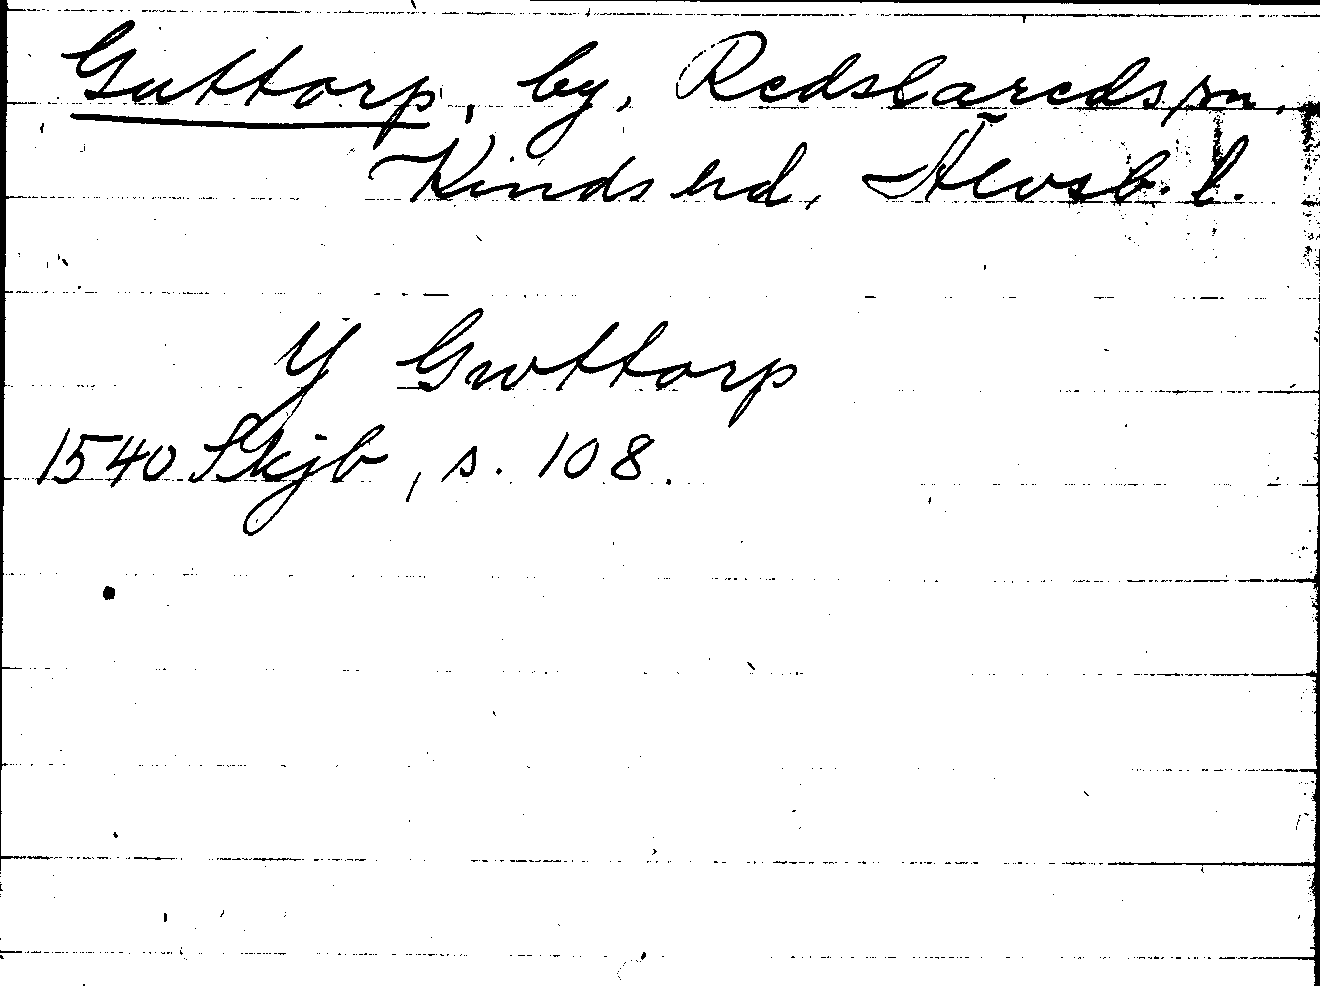 Guttorp, by, Redslareds sn,
Kinds hd, Älvsb. l.
Y Gwttorp
1540 Skjb, s. 108.